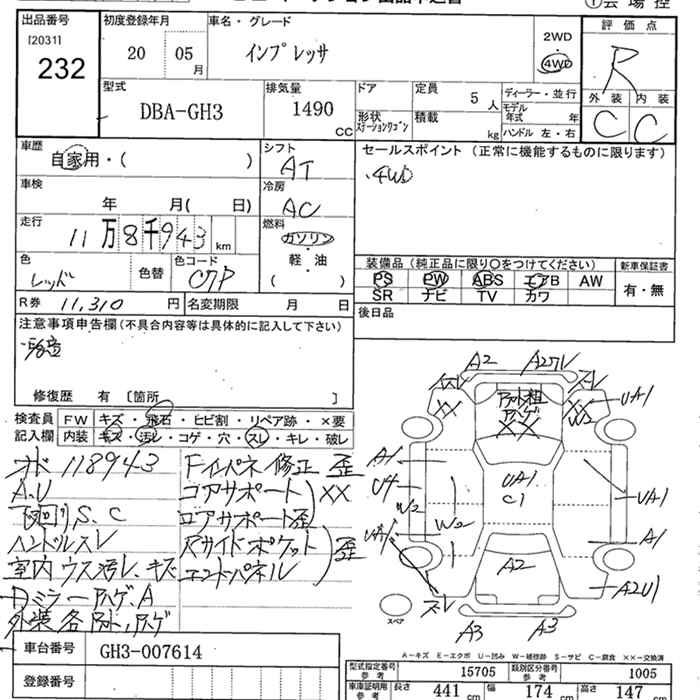 出品番号
[2031]
232
初度登録年月
20 05
月
車名・グレード
インプレッサ
2WD
4WD
評価点
R
外装 内装
C C
型式
DBA-GH3
排気量
1490
CC
ドア
形状
ステーションワゴン
定員
5 人
積載
kg
ディーラー・並行
モデル年式 年
ハンドル 左・右
車歴
自家用・( )
シフト
AT
セールスポイント (正常に機能するものに限ります)
.4WD
車検
年 月( 日)
冷房
AC
走行
11万8千943 km
燃料
ガソリン
軽・油
( )
色
レッド
色替
色コード
C7P
装備品 (純正品に限り○をつけてください)
PS PW ABS エアB AW
SR ナビ TV カワ
新車保証書
有・無
R券 11,310 円
名変期限 月 日
後日品
注意事項申告欄(不具合内容等は具体的に記入して下さい)
修復歴 有 [箇所 ]
検査員記入欄
FW キズ・飛石・ヒビ割・リペア跡・×要
内装 キズ・汚レ・コゲ・穴・スレ・キレ・破レ
オド 118943
A.U
下回りS.C
ハンドルスレ
室内ウス汚レ、キズ
Dミラーハゲ、A
外装各
Fインパネ修正 歪
コアサポート)××
ロアサポート歪
Rサイドポケット)歪
エンドパネル
A2
××
××
W2
UA1
A1
U4
W2
W2
UA1
C1
UA1
A1
A2
A2U1
スレ
A3
A3
スペア
A−キズ E−エクボ U−凹み W−補修跡 S−サビ C−腐食 ××−交換済
車台番号
GH3-007614
登録番号
型式指定番号
15705
類別区分番号
1005
車庫証明用
長さ 441 cm 幅 174 cm 高さ 147 cm